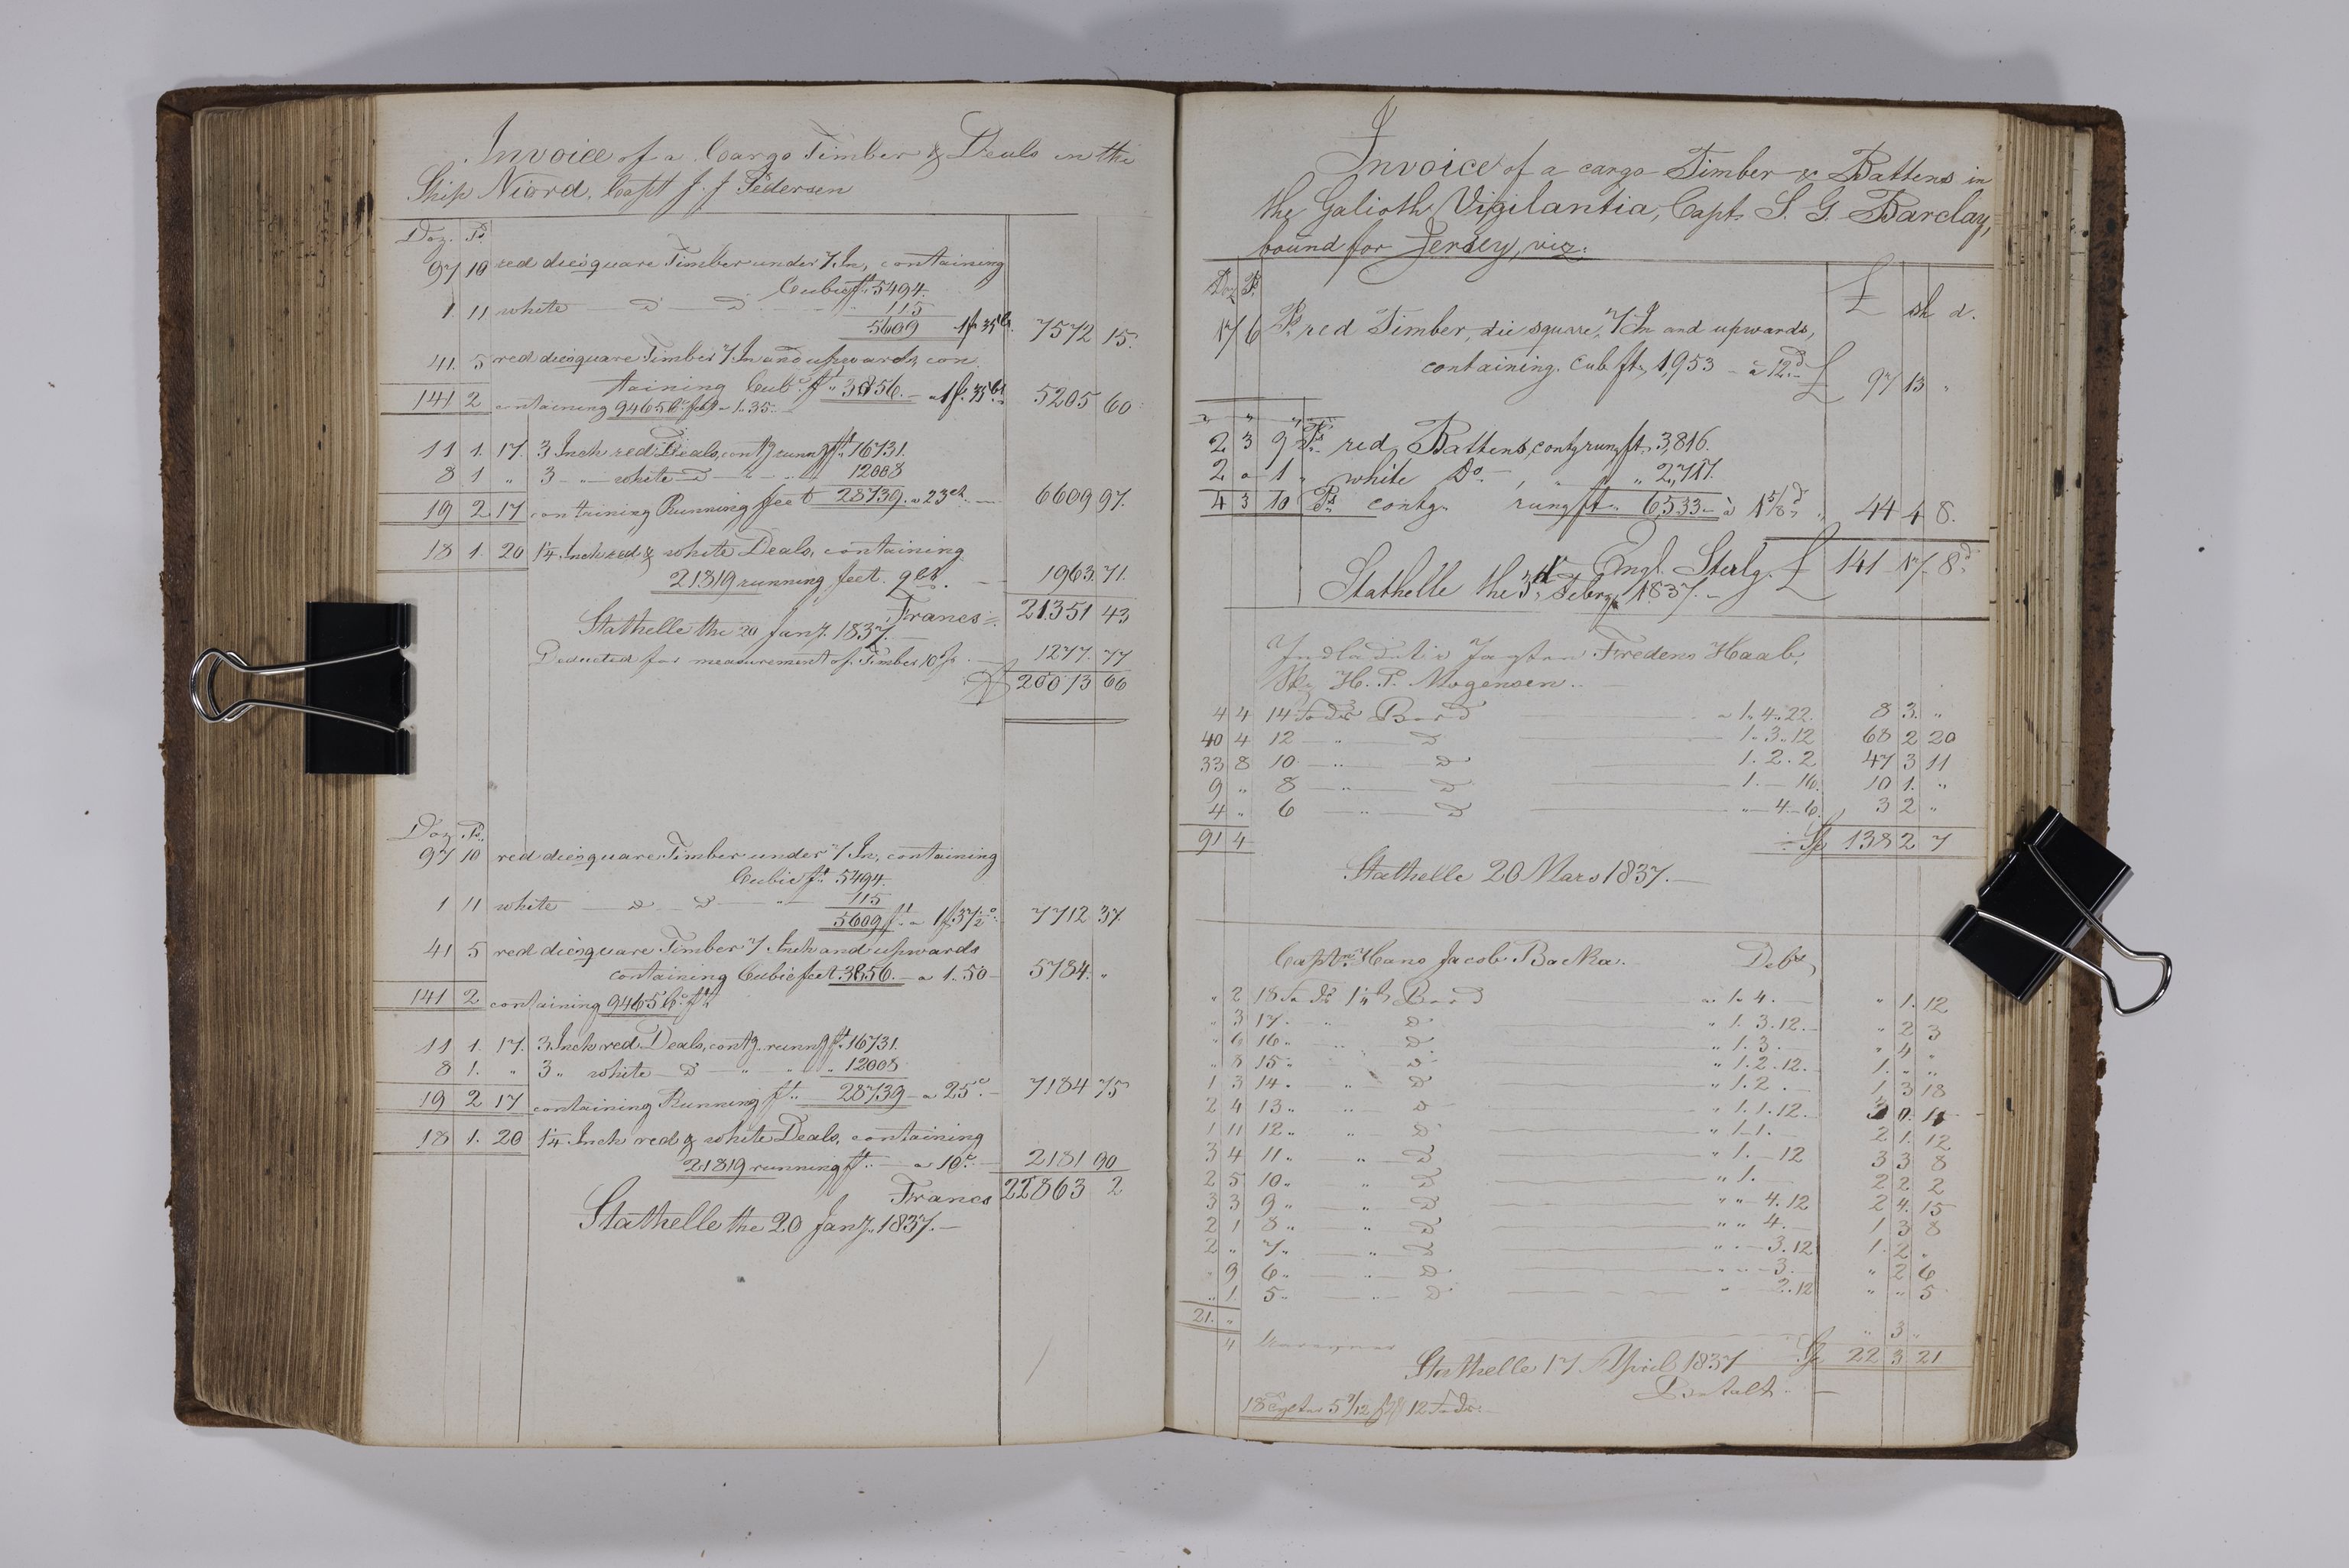 Invoice of a Cargo Timber & Deals in the
Ship Niord, Capt J. J. Pedersen
Doz. Ps.
97 10 red diesquare Timber under 7 In, containing
Cubic ft 5494.
1. 11 white — D — D 115
5609 1f 35 Cs. 7572 15.
41. 5 red diesquare Timber 7 In and upwards, con
taining Cubc ft 3856. a 1f. 35 Cs. 5205 60
141 2 containing 9465 Cb. ft a 1. 35.
11 1. 17. 3 Inch red Deals, contg runng ft 16731.
8 1 „ 3 „ white D „ „ 12008
19 2 17 containing Running feet 28739. a 23 ct. 6609 97.
18 1. 20 1¼ Inch red & white Deals, containing
21819 running feet. 9 ct. 1963. 71.
Francs 21351 43
Stathelle the 20 Jany. 1837.
Deducted for measurement of Timber 10 pC. 1277. 77
20073 66
Doz. Ps.
97 10 red diesquare Timber under 7 In, containing
Cubic ft 5494.
1 11 white — D — D „ 115
5609 ft a 1f 37½ c. 7712 37.
41 5 red diesquare Timber 7 Inch and upwards
containing Cubic feet 3856. a 1. 50 5784. „
141 2 containing 9465 Cb. ft
11 1. 17. 3 Inch red Deals, contg. runng ft 16731.
8 1. „ 3 „ white D „ „ 12008
19 2 17 containing Running ft 28739 a 25 c. 7184 75
18 1. 20 1¼ Inch red & white Deals, containing
21819 running ft a 10 c. 2181 90
Francs 22863 2
Stathelle the 20 Jany. 1837.
Invoice of a cargo Timber & Battens in
the Galioth Vigilantia, Capt. S. G. Barclay,
bound for Jersey, viz:
Doz Ps £ sh d.
17 6 Ps. red Timber, die square, 7 In and upwards,
containing. Cub ft, 1,953 a 12 d £ 97 13 „
2 3 9 Ps. red Battens, contg rung ft. 3,816.
2 „ 1 „ white Do „ „ 2,717.
4 3 10 Ps contg. rung ft. 6,533 à 1 5/8 d 44 4 8.
Engl. Sterlg. £ 141 17 8 d
Stathelle the 3d Febry 1837.
Indladet i Jagten Fredens Haab,
Sk. H. P. Mogensen.
4 4 14 Fods Bord a 1. 4. 22. 8 3. „
40 4 12 „ D 1. 3. 12 68 2 20
33 8 10 „ D 1. 2. 2 47 3 11
9 „ 8 „ D 1. — 16. 10 1. „
4 „ 6 „ D „ 4 6 3 2 „
91 4 Sp 138 2 7
Stathelle 20 Mars 1837.
Captn. Hans Jacob Backa. Debt,
„ 2 18 Fods 1¼ Bord a 1. 4. „ 1. 12
„ 3 17. „ D „ 1. 3. 12. „ 2 3
„ 6 16 „ D „ 1. 3. „ 4 „
„ 8 15 „ D „ 1. 2. 12. 1. „ „
1 3 14. „ D „ 1. 2. 1. 3 18
2 4 13 „ D „ 1. 1. 12. 3 0. 11
1 11 12 „ D „ 1. 1. 2 1. 12
3 4 11 „ D „ 1. — 12 3 3 8
2 5 10 „ D „ 1. 2 2 2
3 3 9 „ D „ „ 4. 12 2 4. 15
2 1 8 „ D „ „ 4. 1 3 8
2 „ 7 „ D „ „ 3. 12 1. 2 „
„ 9 6 „ D „ „ 3. „ 2 6
„ 1. 5 „ D „ 2. 12 „ „ 5
21. „
4 „ 3 „
Stathelle 17 April 1837 Sp 22 3 21
Betalt.
18 Tylter 5 7/12 12 Fods.